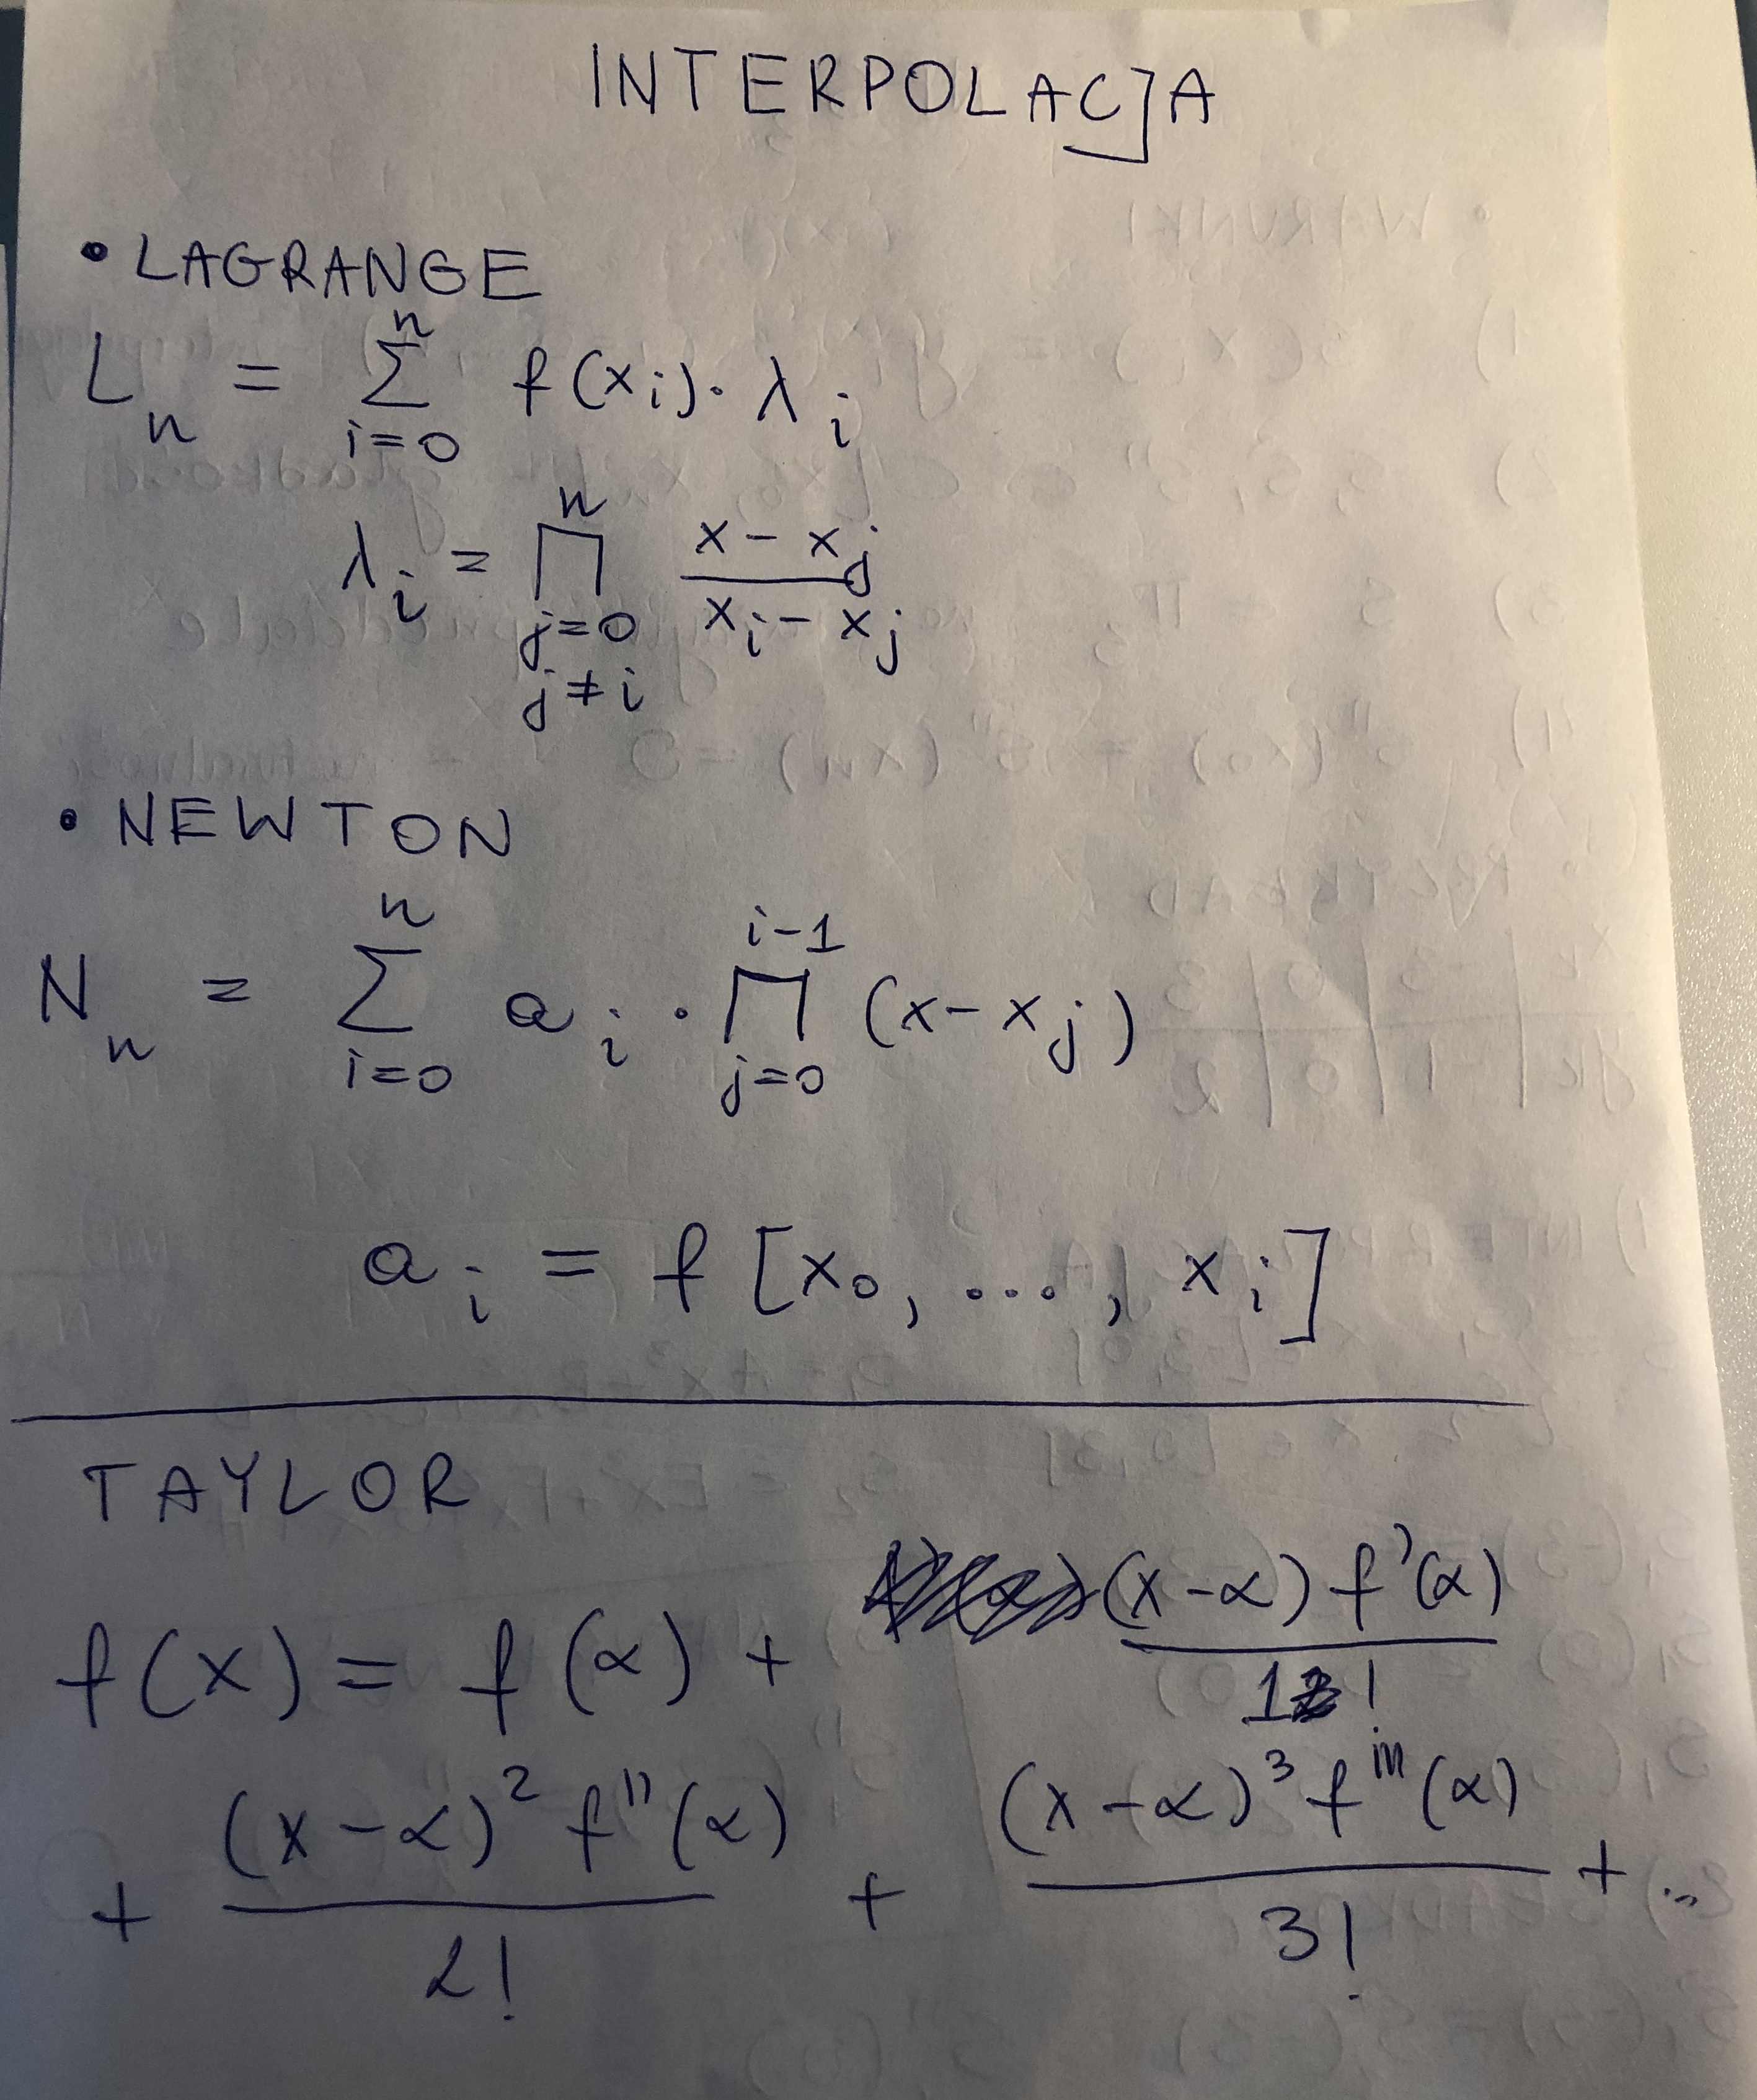 INTERPOLACJA
• LAGRANGE
L_n = \sum_{i=0}^{n} f(x_i) · λ_i
λ_i = \prod_{j=0, j≠i}^{n} \frac{x - x_j}{x_i - x_j}
• NEWTON
N_n = \sum_{i=0}^{n} a_i · \prod_{j=0}^{i-1} (x - x_j)
a_i = f[x_0, ..., x_i]
TAYLOR
f(x) = f(α) + \frac{(x-α) f'(α)}{1!}
+ \frac{(x-α)^2 f''(α)}{2!} + \frac{(x-α)^3 f'''(α)}{3!} + ...